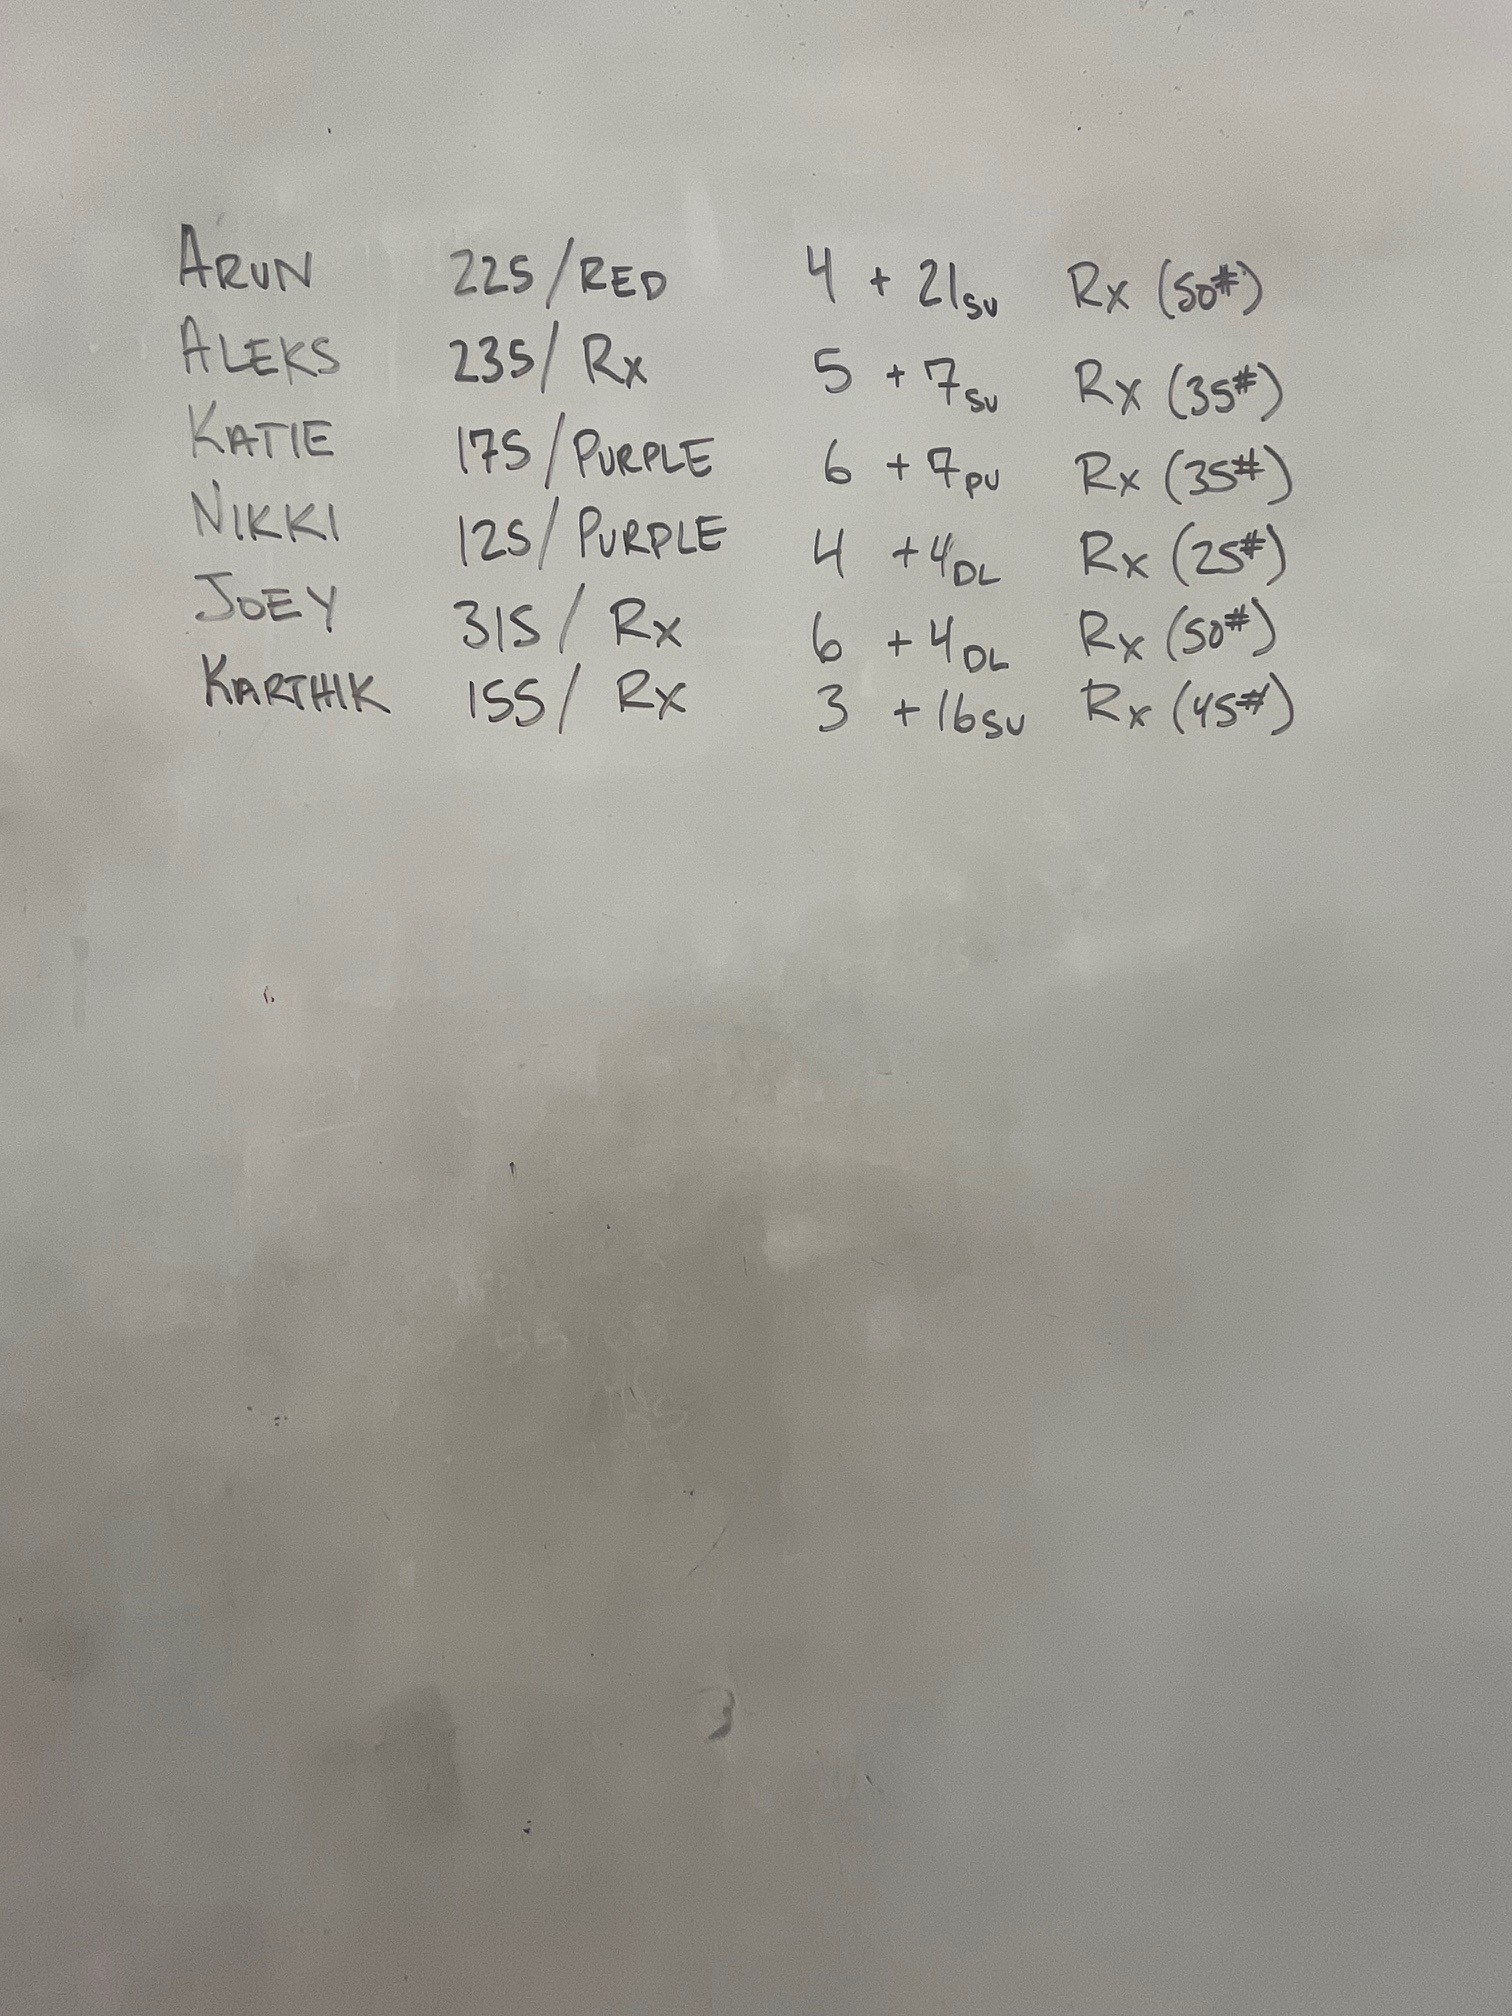 ARUN 225/RED 4 + 21SU Rx (50#)
ALEKS 235/ Rx 5 + 7SU Rx (35#)
KATIE 175/PURPLE 6 + 7PU Rx (35#)
NIKKI 125/PURPLE 4 +4DL Rx (25#)
JOEY 315/ Rx 6 +4DL Rx (50#)
KARTHIK 155/ Rx 3 +16SU Rx (45#)
3